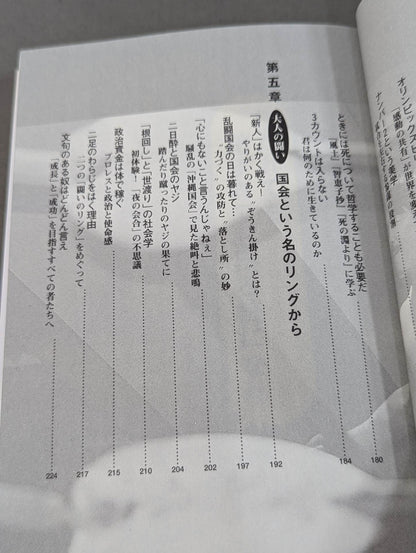 オリンピック
「感動の共有」が世界を変
ナンバー2という美学
ときには死について哲学することも必要だ
『風土』『智恵子抄』『死の淵より』に学ぶ 180
3カウントは入らない
君は何のために生きているのか 184
第五章 大人の闘い 国会という名のリングから
「新人」はかく戦え!
やりがいのある〝ぞうきん掛け〟とは? 192
乱闘国会の日は暮れて…
〝力づく〟の攻防と〝落とし所〟の妙 197
「心にもないこと言うんじゃねぇ」
騒乱の「沖縄国会」で見た絶叫と悲鳴 202
二日酔と国会のヤジ
踏んだり蹴ったりのヤジの果てに 204
「根回し」と「世渡り」の社会学
初体験!「夜の会合」の不思議 210
政治資金は体で稼ぐ
プロレスと政治と使命感 215
二足のわらじをはく理由
二つの「闘いのリング」をめぐって 217
文句のある奴はどんどん言え
「成長」と「成功」を目指すすべての者たちへ 224